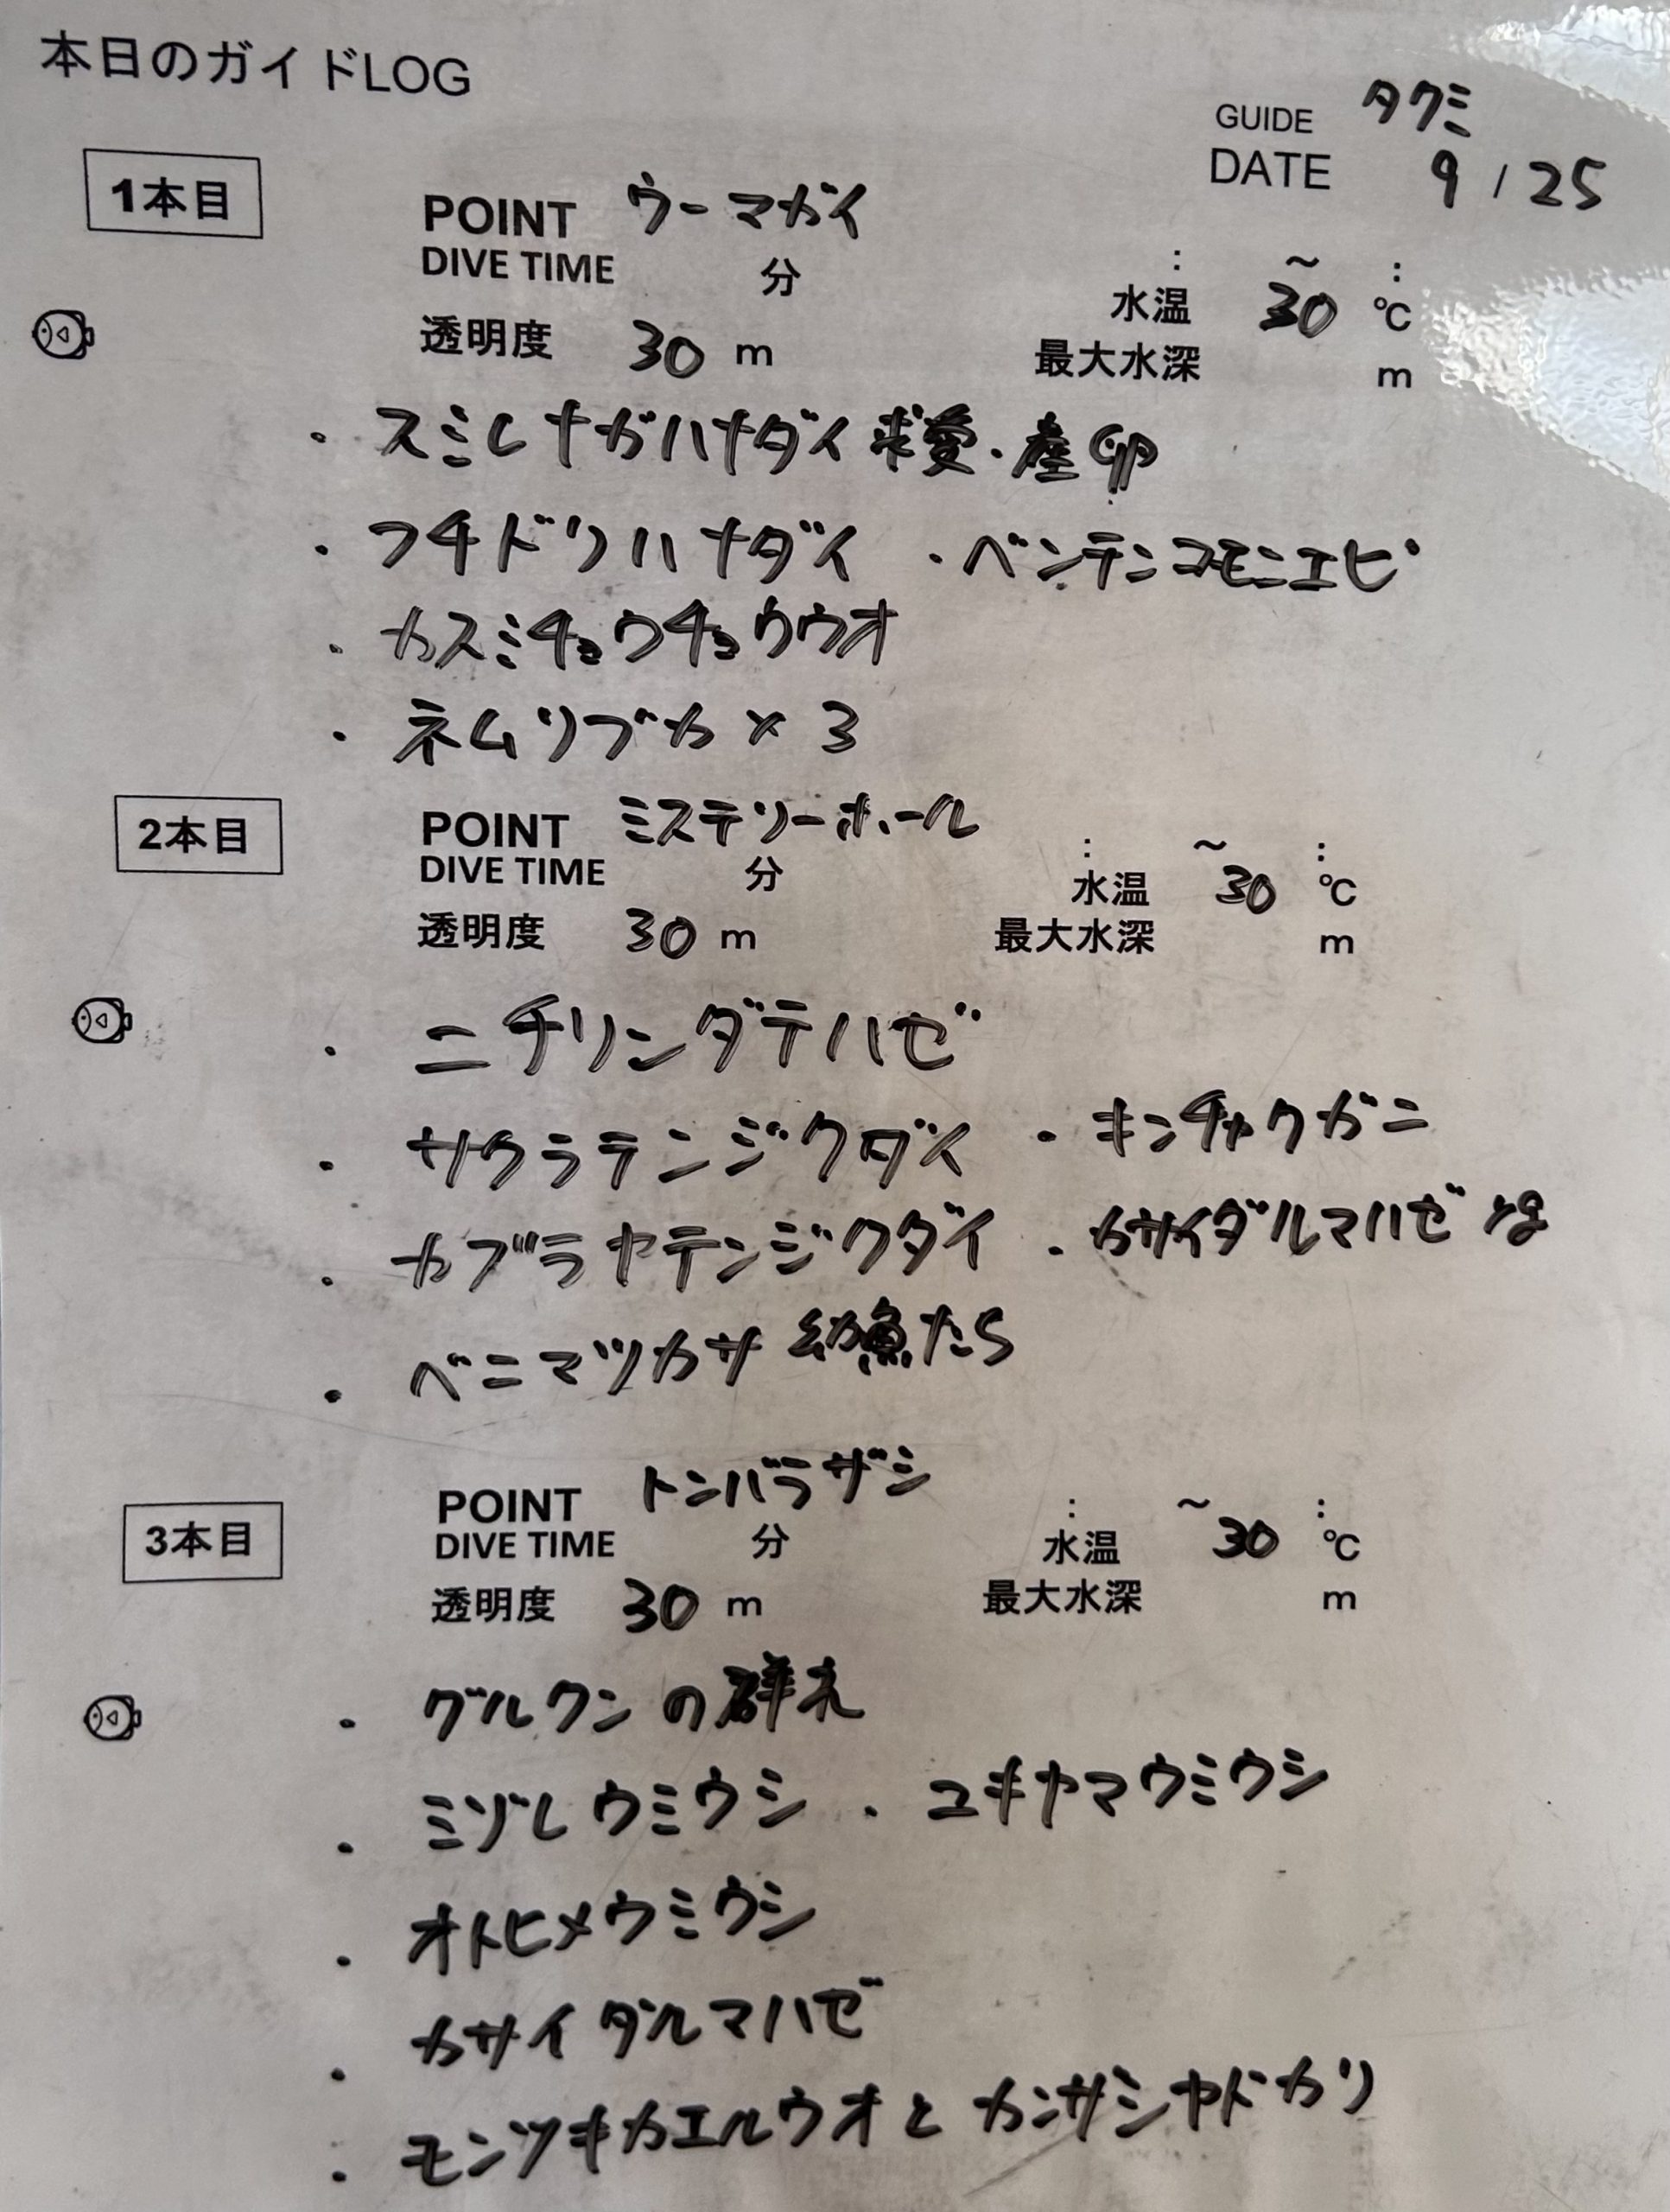 本日のガイドLOG
GUIDE タクミ
DATE 9/25
1本目
POINT ウーマガイ
DIVE TIME 分 : ～ :
水温 30 ℃
透明度 30 m
最大水深 m
・スミレナガハナダイ 求愛・産卵
・フチドリハナダイ ・ベンテンコモンエビ
・カスミチョウチョウウオ
・ネムリブカ×3
2本目
POINT ミステリーホール
DIVE TIME 分 : ～ :
水温 30 ℃
透明度 30 m
最大水深 m
・ニチリンダテハゼ
・サクラテンジクダイ ・キンチャクガニ
・カブラヤテンジクダイ ・カサイダルマハゼ
・ベニマツカサ 幼魚たち
3本目
POINT トンバラザシ
DIVE TIME 分 : ～ :
水温 30 ℃
透明度 30 m
最大水深 m
・グルクンの群れ
・ミゾレウミウシ ・ユキヤマウミウシ
・オトヒメウミウシ
・カサイダルマハゼ
・モンツキカエルウオと カンザシヤドカリ